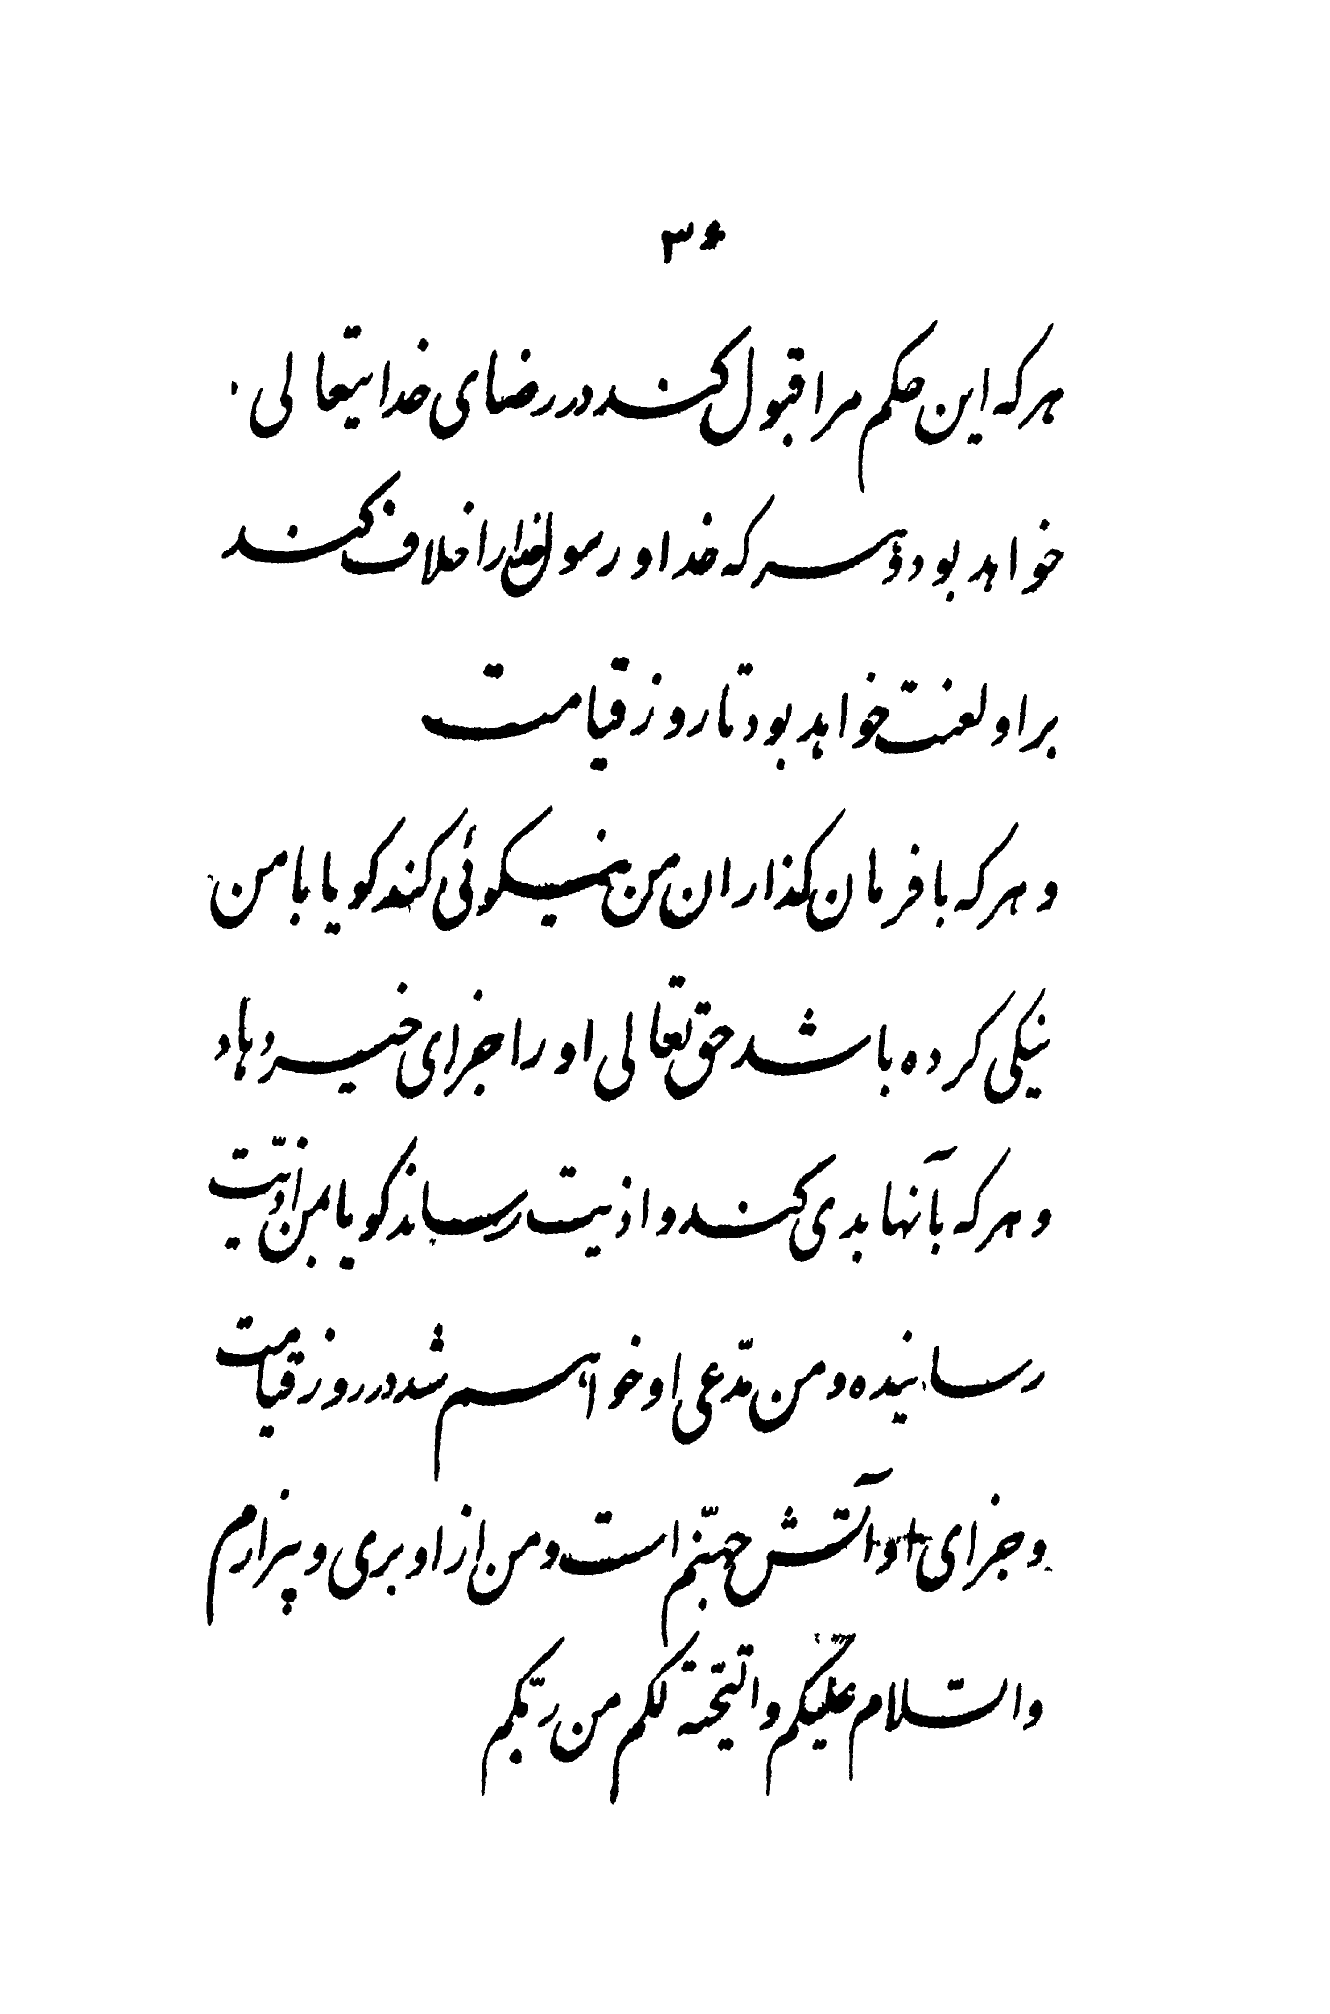 ۳۶
هر که این حکم مرا قبول کند در رضای خدایتعالی
خواهد بود و هر که خدا و رسول خدا را خلاف کند
بر او لعنت خواهد بود تا روز قیامت
و هر که با فرمان گذاران من نیکوئی کند گویا با من
نیکی کرده باشد حق تعالی او را جزای خیر دهاد
و هر که بآنها بدی کند و اذیت رساند گویا بمن اذیّت
رسانیده و من مدّعی او خواهم شد در روز قیامت
و جزای او آتش جهنّم است و من از او بری و بیزارم
والسّلام علیکم والتّحیّة لکم من ربّکم